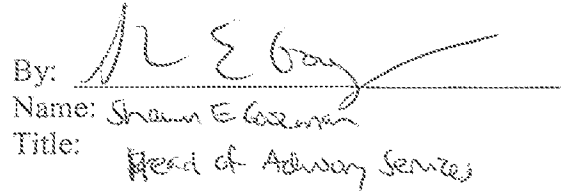 By:
Name: Shawn E
Title:
Head of Advisory Services